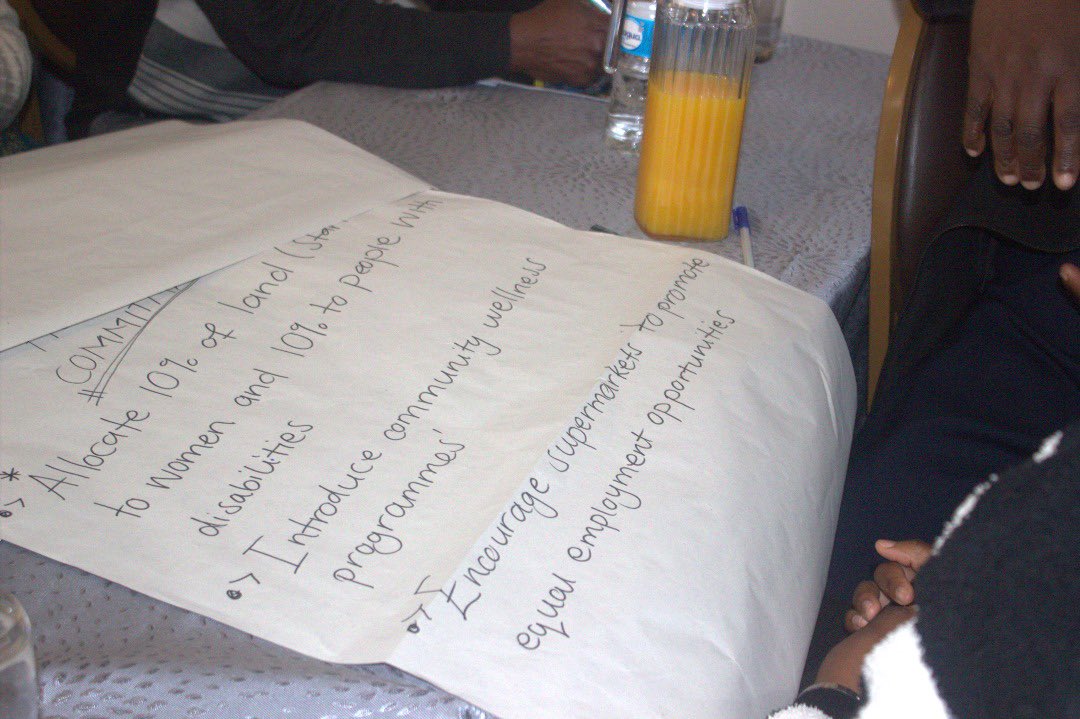 #COMMIT
* Allocate 10% of land (
to women and 10% to people with
disabilities
Introduce community wellness
programmes'
Encourage 'supermarkets' to promote
equal employment opportunities